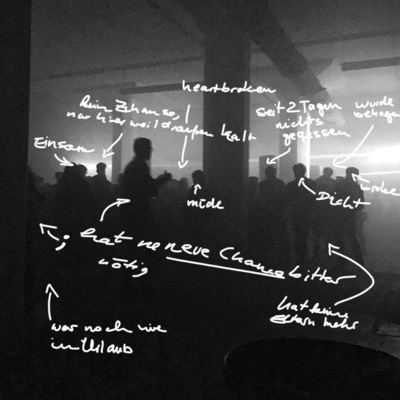 heartbroken
Kein Zuhause,
nur hier weil draußen kalt
seit 2 Tagen
nichts
gegessen
wurde
betrogen
Einsam
müde
Dicht
hat ne neue Chance bitter
nötig
hat keine
Eltern mehr
war noch nie
im Urlaub